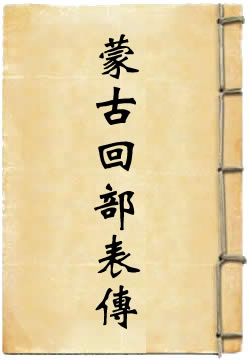 蒙古回部表傳